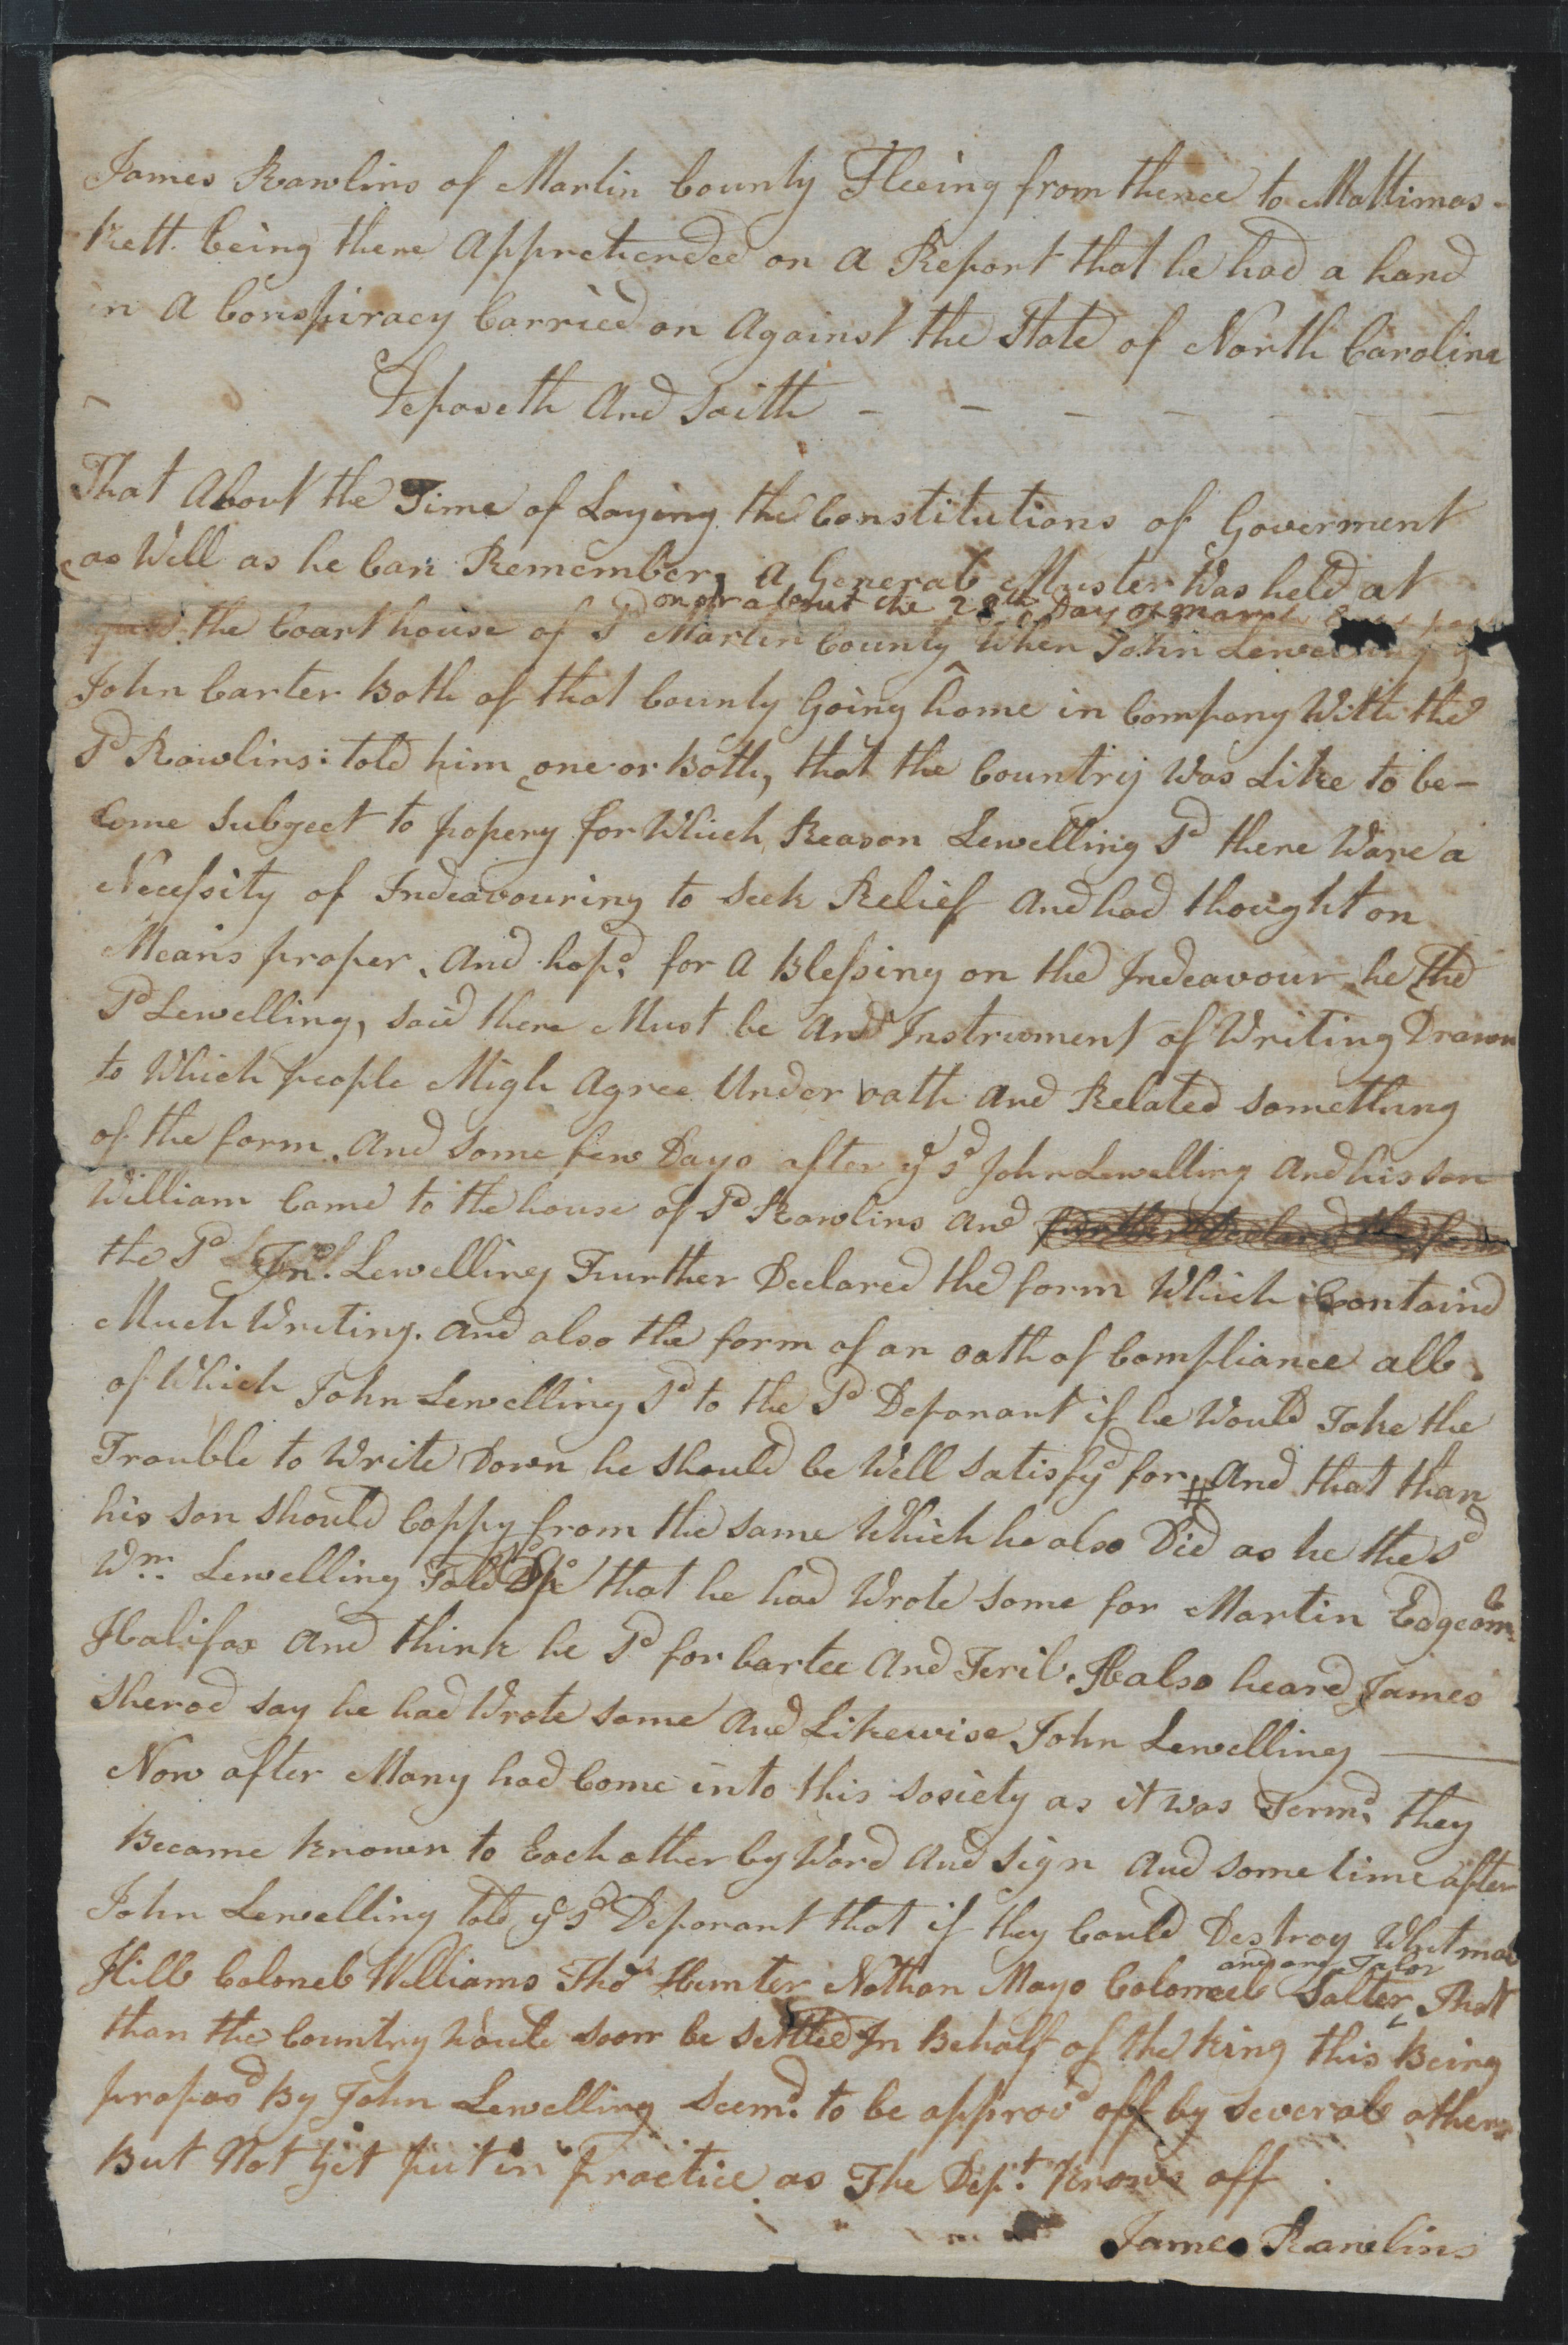 James Rawlins of Martin County Fleeing from thence to Mattimas-
kett. being there Apprehended on a Report that he had a hand
in A Conspiracy Carried on Against the State of North Carolina
Deposeth And Saith - - - - - - -
That About the Time of Laying the Constitutions of Goverment
as Well as he Can Remember, A General Muster Was held at
on or about the 28th Day of march
the Court house of Sd Martin County When John Lewelling &
John Carter Both of that County Going home in Company With the
Sd Rawlins: told him one or Both, that the Country Was Like to be-
Come Subgect to popery for Which Reason Lewelling Sd there Ware a
Necessity of Indeavouring to Seek Relief And had thought on
Means proper. And hopd. for A Blessing on the Indeavour he The
Sd Lewelling, Said there Must be And Instrument of Writing Drawn
to Which people Migh Agree Under oath And Related Something
of the form. And Some few Days after ye sd John Lewelling And his Son
William Came to the house of Sd Rawlins And further Declared the form
the Sd Jno. Lewelling Further Declared the form Which Containd
Much Writing. And also the form of an oath of Compliance all
of Which John Lewelling Sd to the Sd Deponant if he Would Take the
Trouble to Write Down he Should be Well Satisfyd for # And that than
his Son Should Coppy from the Same Which he also Did as he the sd
Wm. Lewelling Told that he had Wrote Some for Martin Edgcomb
Halifax And think he Sd for Bartee And Teril. He also heard James
Sherod Say he had Wrote Some And Likewise John Lewelling —
Now after Many had Come into this Sosiety as it was Termd. they
Became Known to Each other by Word And Sign And Some time after
John Lewelling told ye Sd Deponant that if they Could Destroy Whitmal
and one Taylor
Hill Colonel Williams Thos Hunter Nathan Mayo Colonel Salter, That
than the Country Would Soon be Settled In Behalf of the King this Being
proposd By John Lewelling Seemd. to be approvd off by Several others
But Not Yit put in Practice as The Dept. Knows off
James Rawlins